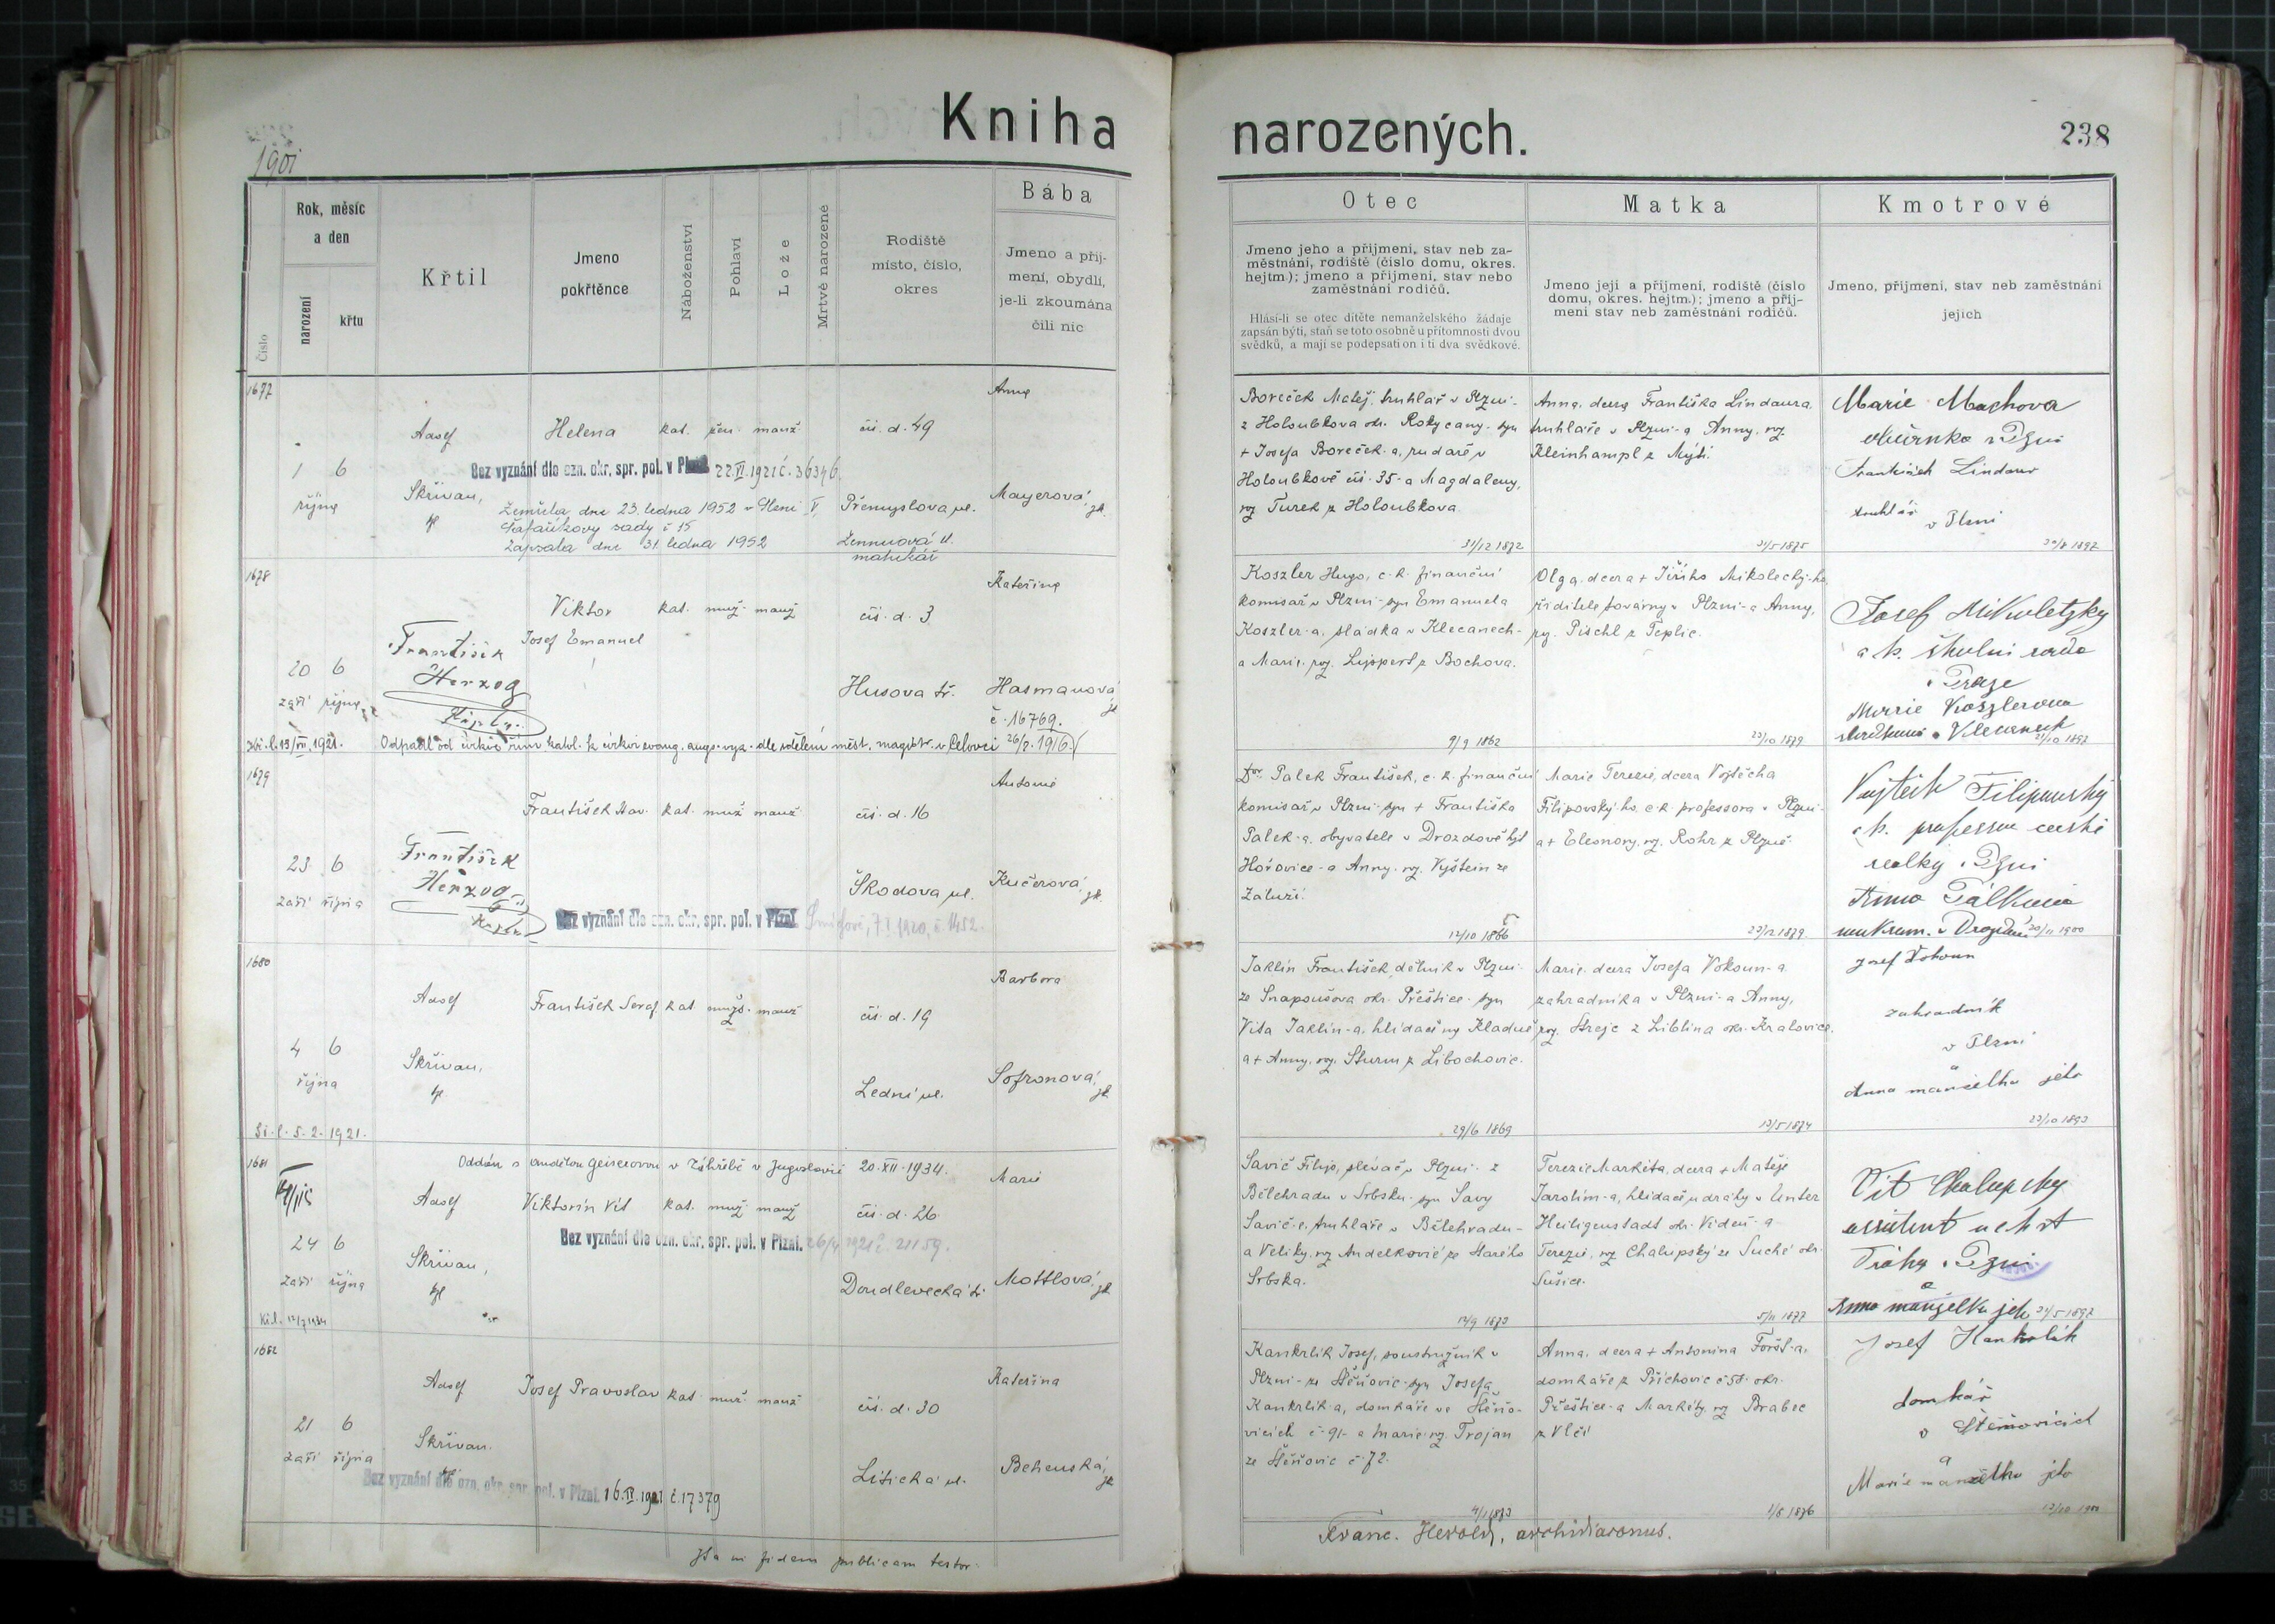 Kniha
narozených.
238
1901
Číslo
Rok, měsíc
a den
narození
křtu
Křtil
Jmeno
pokřtěnce
Náboženství
Pohlaví
Lože
Mrtvě narozené
Rodiště
místo, číslo,
okres
Bába
Jmeno a příj-
mení, obydlí,
je-li zkoumána
čili nic
Otec
Jmeno jeho a příjmení, stav neb za-
městnání, rodiště (číslo domu, okres.
hejtm.); jmeno a příjmení, stav nebo
zaměstnání rodičů.
Hlásí-li se otec dítěte nemanželského žádaje
zapsán býti, staň se toto osobně u přítomnosti dvou
svědků, a mají se podepsati on i ti dva svědkové.
Matka
Jmeno její a příjmení, rodiště (číslo
domu, okres. hejtm.); jmeno a příj-
mení stav neb zaměstnání rodičů.
Kmotrové
Jmeno, příjmení, stav neb zaměstnání
jejich
1677
1 6
října
Adolf
Skřivan,
Helena kat. žen. manž.
čís. d. 49
Přemyslova ul.
Anna
Mayerová, zk.
Bez vyznání dle ozn. okr. spr. pol. v Plzni 22.VI.1921 č. 36346
Zemřela dne 23. ledna 1952 v Plzni V,
Šafaříkovy sady č 15
Zapsala dne 31. ledna 1952
matrikář
Boreček Matěj, truhlář v Plzni-
z Holoubkova okr. Rokycany- syn
+ Josefa Boreček-a, rudaře v
Holoubkově čís. 35- a Magdaleny,
roz. Turek z Holoubkova.
31/12 1872
Anna, dcera Františka Lindaura,
truhláře v Plzni- a Anny, roz.
Kleinhampl z Mýti.
21/5 1875
Marie Machova
v Plzni
František Lindaur
truhlář
v Plzni
1678
20 6
září října
František
Herzog
Kaplan
Viktor kat. muž. manž
Josef Emanuel
čís. d. 3
Husova tř.
Kateřina
Hasmanová, zk
č. 16769.
Kř. l. 13/VII. 1921.
Odpadl od církve řím. katol. k církvi evang. augs. vyz. dle sdělení měst. magistr. v Celovci 26/7. 1916.
Koszler Hugo, c. k. finanční
komisař v Plzni- syn Emanuela
Koszler-a, sládka v Klecanech-
a Marie, roz. Lippert z Bochova.
9/9 1862
Olga, dcera + Jiřího Mikolecký-ho,
ředitele továrny v Plzni- a Anny,
roz. Pischl z Teplic.
23/10 1879
Josef Mikoletzky
c. k. školní rada
v Praze
Marie Koszlerova
1679
23 6
září října
František
Herzog
Kaplan
František Hav. kat. muž. manž
čís. d. 16
Škodova ul.
Antonie
Kučerová, zk.
Bez vyznání dle ozn. okr. spr. pol. v Plzni Smíchově, 7.I.1920, č. 1452.
Dor. Palek František, c. k. finanční
komisař v Plzni- syn + Františka
Palek-a, obyvatele v Drozdově hejt
Hořovice- a Anny, roz. Vyštein ze
Zaluží.
12/10 1866
Marie Terezie, dcera Vojtěcha
Filipovský-ho, c. k. professora v Plzni-
a + Eleonory, roz. Rohr z Plzně.
23/12 1879.
Vojtěch Filipovský
c. k. professor české
realky v Plzni
Anna Pálková
soukrom. v Drozdově 20/11 1900
1680
4 6
října
Adolf
Skřivan,
František Seraf. kat. muž. manž
čís. d. 19
Lední ul.
Barbora
Sofronová, zk
Kř. l. 5. 2. 1921.
Jaklin František, dělník v Plzni-
ze Snapoušova okr. Přeštice- syn
Víta Jaklin-a, hlídače
a + Anny, roz. Sturm z Libochovic.
29/6 1869
Marie, dcera Josefa Vokoun-a,
zahradníka v Plzni- a Anny,
roz. Strejc z Liblína okr. Kralovice.
13/5 1874
Josef Vokoun
zahradník
v Plzni
a
Anna manželka jeho
22/10 1893
1681
24 6
září října
Oddán s Anděl­ou Geiserovou v Záhřebě v Jugoslavii 20. XII. 1934.
Adolf
Skřivan,
Viktorin Vít kat. muž. manž
čís. d. 26
Doudlevecká tř.
Marie
Mottlová, zk
Bez vyznání dle ozn. okr. spr. pol. v Plzni. 26/4 1921 č. 21159.
Savič Filip, slévač v Plzni- z
Bělehradu v Srbsku- syn Savy
Savič-e, truhláře v Bělehradu-
a Veliky, roz Andelkovič ze Starého
Srbska.
14/9 1873
Terezie Markéta, dcera + Matěje
Jarolím-a, hlídače u dráhy v Unter
Heiligenstadt okr. Vídeň- a
Terezie, roz Chalupský ze Suché okr.
Sušice.
5/11 1877
Vít Chalupský
assistent u c k st
Dráhy v Plzni
a
Anna manželka jeho 21/5 1897
1682
21 6
září října
Adolf
Skřivan.
Josef Pravoslav kat muž. manž
čís. d. 30
Litická ul.
Kateřina
Behenská, zk
Bez vyznání dle ozn. okr. spr. pol. v Plzni. 16.IV.1921 č. 17379
Kankrlík Josef, soustružník v
Plzni- ze Štěnovic- syn Josefa
Kankrlík-a, domkáře ve Štěno-
vicích č. 91- a Marie, roz. Trojan
ze Štěnovic č. 72.
4/1 1873
Anna, dcera + Antonína Foršt-a,
domkáře z Příchovic č 58. okr.
Přeštice- a Markéty, roz Brabec
z Vlčí
1/8 1876
Josef Kankrlík
domkář
v Štěnovicích
a
Marie manželka jeho
Ita in fidem publicam testor.
Franc. Herold, archidiaconus.